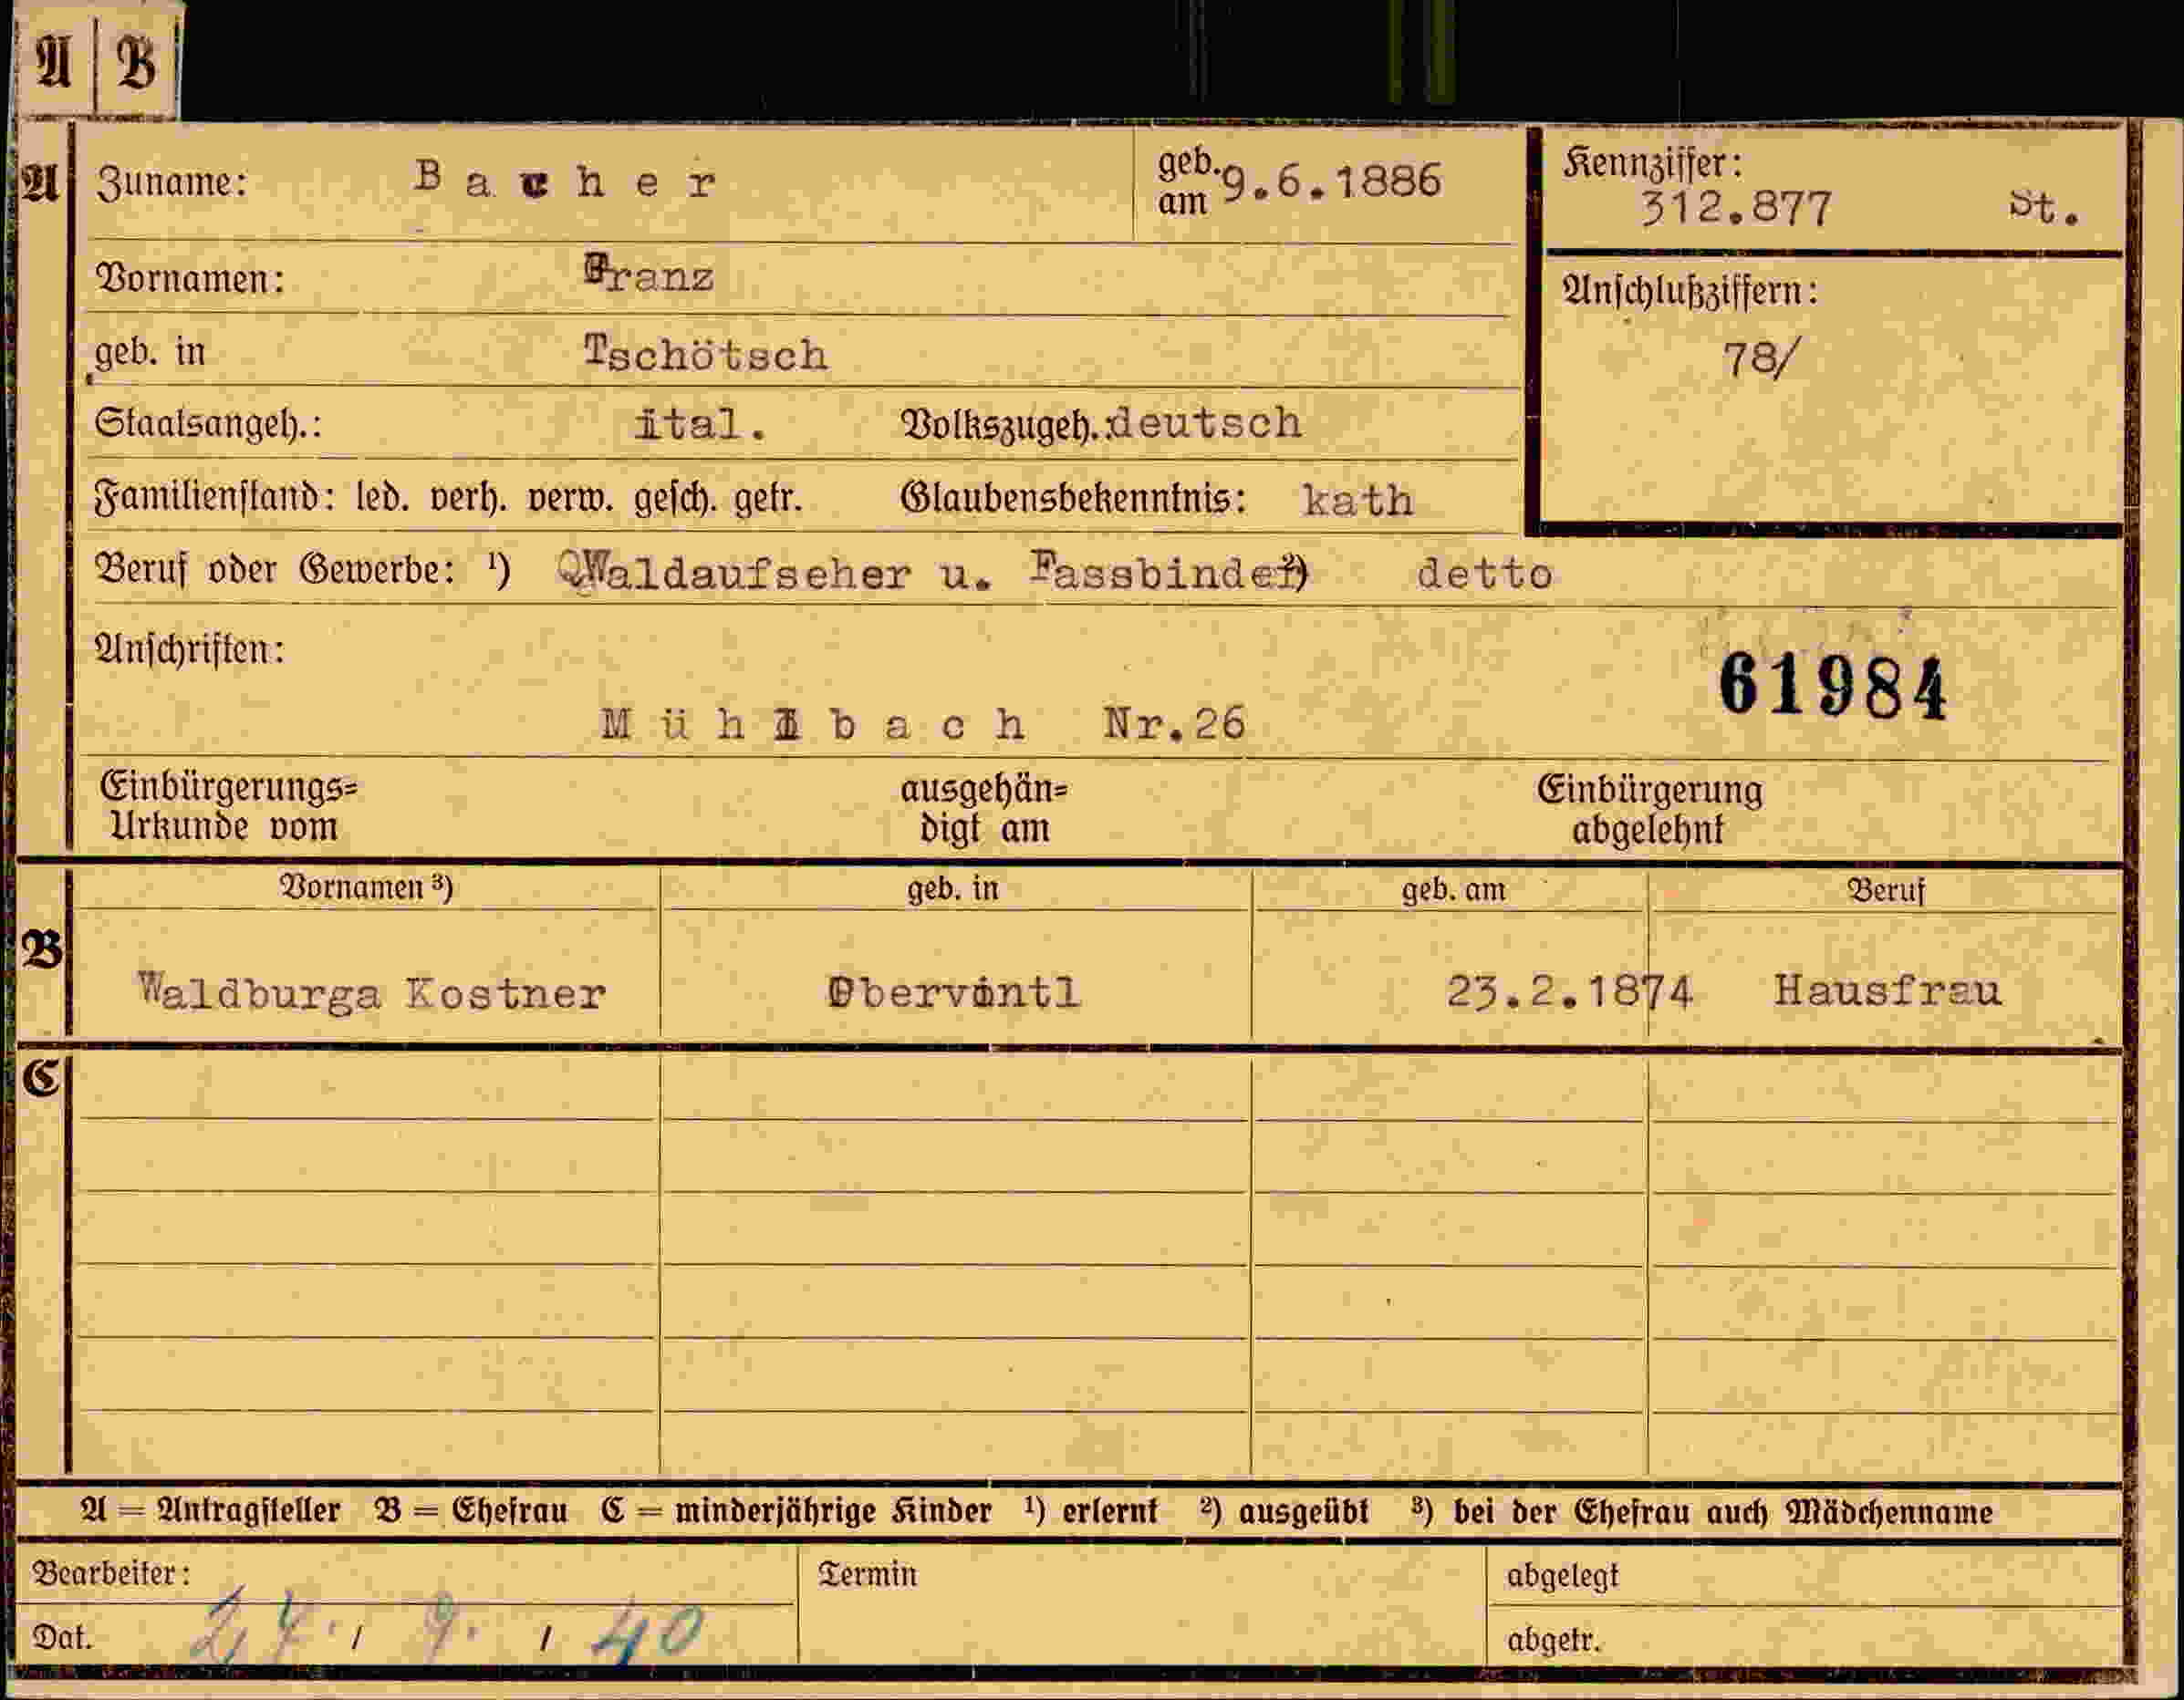 A B
A Zuname: Bacher geb. am 9.6.1886 Kennziffer: 312.877 St.
Vornamen: Franz Anschlußziffern: 78/
geb. in Tschötsch
Staatsangeh.: ital. Volkszugeh.: deutsch
Familienstand: led. verh. verw. gesch. getr. Glaubensbekenntnis: kath
Beruf oder Gewerbe: ¹) Waldaufseher u. Fassbinder ²) detto
Anschriften: 61984
Mühlbach Nr.26
Einbürgerungs= Urkunde vom ausgehän= digt am Einbürgerung abgelehnt
Vornamen ³) geb. in geb. am Beruf
B Waldburga Kostner Obervintl 23.2.1874 Hausfrau
C
A = Antragsteller B = Ehefrau C = minderjährige Kinder ¹) erlernt ²) ausgeübt ³) bei der Ehefrau auch Mädchenname
Bearbeiter: Termin abgelegt
Dat. / 9. / 40 abgetr.